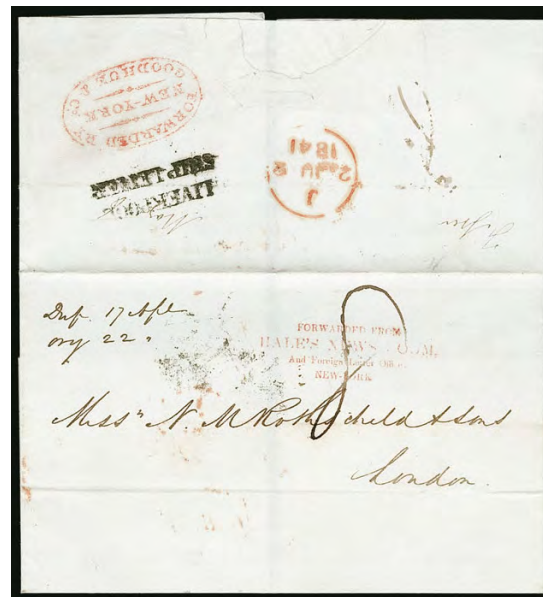 FORWARDED BY
GOODHUE & Co.
NEW-YORK
LIVERPOOL
SHIP LETTER
J
2 JU 2
1841
Dup. 17 Apl
org 22.
8
FORWARDED FROM
HALE'S NEWS ROOM,
And Foreign Letter Office,
NEW-YORK
Messrs N. M Rothschild & Sons
London.